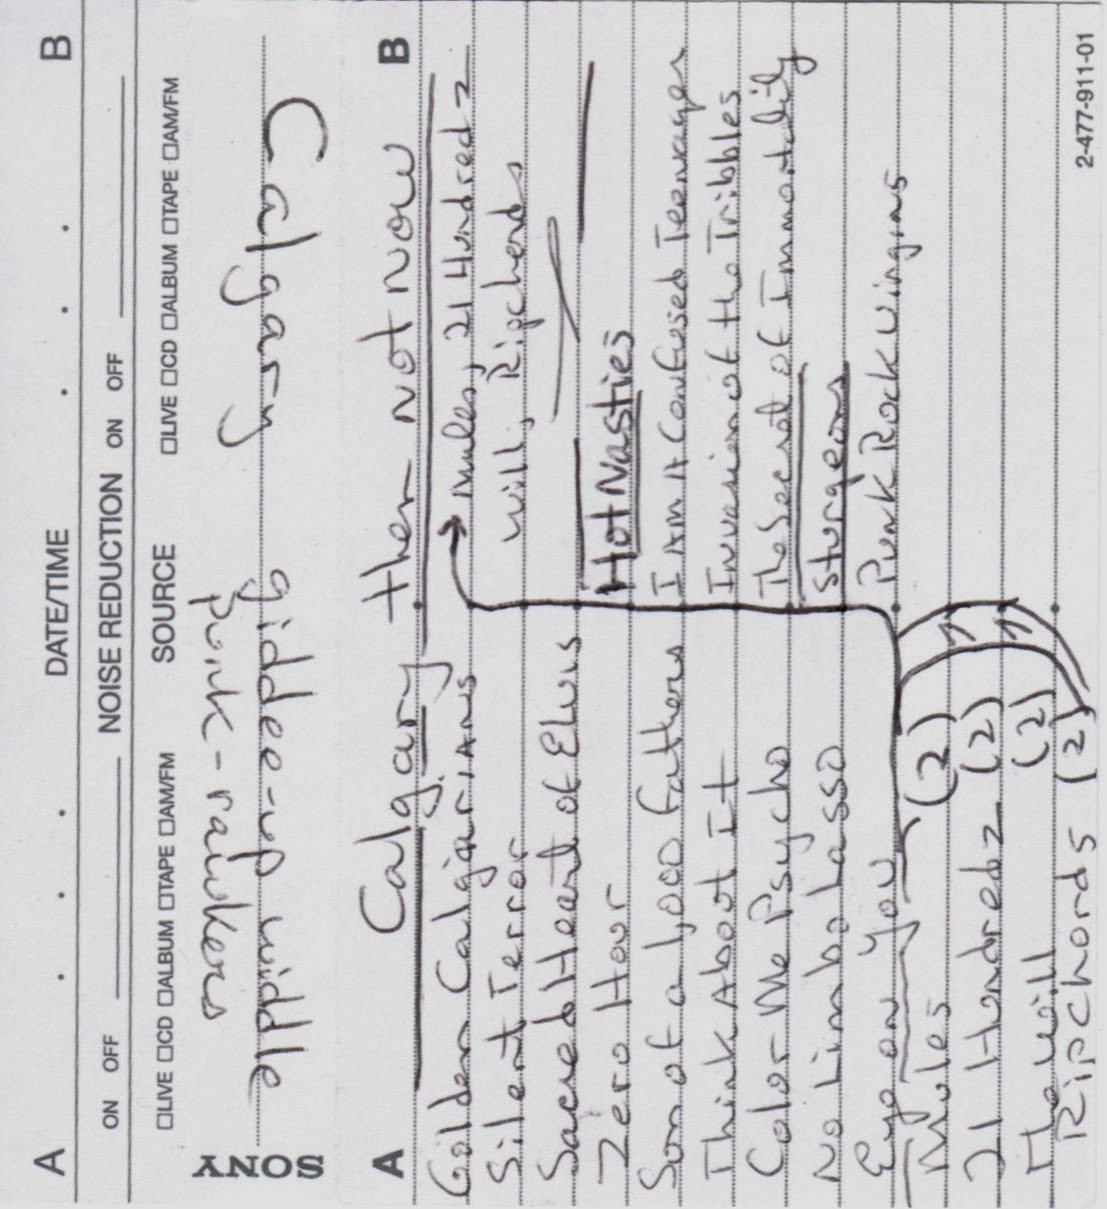 A DATE/TIME B
ON OFF NOISE REDUCTION ON OFF
□LIVE □CD □ALBUM □TAPE □AM/FM SOURCE □LIVE □CD □ALBUM □TAPE □AM/FM
punk-rawkers
SONY giddee-up middle Calgary
A B
Calgary then not now
Golden Calgarians
Silent Terror
Sacred Heart of Elvis
Zero Hour
Son of a 1,000 Fathers
Think About It
Color Me Psycho
No Limbo Lasso
Eye on You
Mules (2)
21 Hundred z (2)
The will (2)
Ripchords (2)
mules, 21 Hundred z
will, Ripchords
Hot Nasties
I Am A Confused Teenager
Invasion of the Tribbles
The Secret of Immortality
Sturgeons
Punk Rock Virgins
2-477-911-01